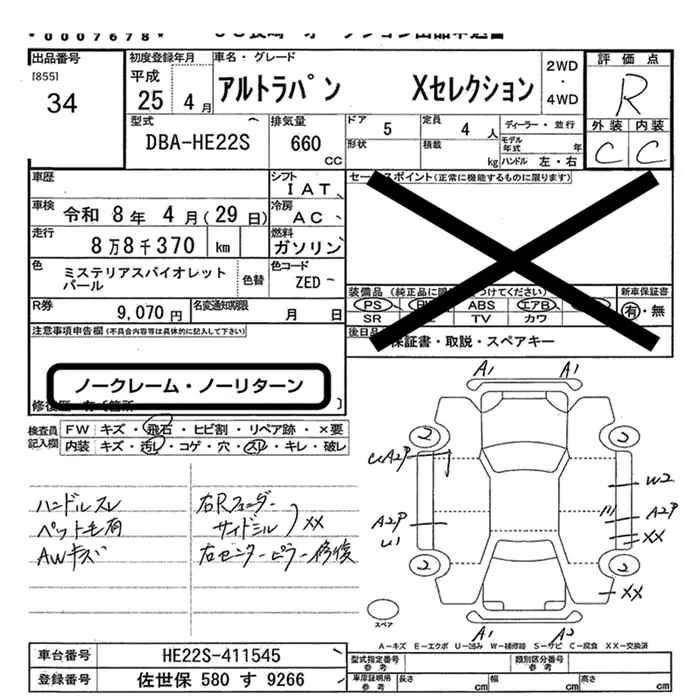 *0007678*
出品番号
[855]
34
初度登録年月
平成
25年 4月
車名・グレード
アルトラパン Xセレクション
2WD
・
4WD
評価点
R
型式
DBA-HE22S
排気量
660
CC
ドア
5
定員
4人
ディーラー・並行
形状
積載
kg
モデル年式
年
ハンドル 左・右
外装 内装
C C
車歴
シフト
IAT
セールスポイント(正常に機能するものに限ります)
車検
令和 8年 4月(29日)
冷房
AC
走行
8万8千370 km
燃料
ガソリン
色
ミステリアスバイオレット
パール
色替
色コード
ZED
装備品
PS
ABS
エアB
SR
TV
カワ
新車保証書
有・無
R券
9,070円
名変通知期限
月 日
保証書・取説・スペアキー
注意事項申告欄(不具合内容等は具体的に記入して下さい)
ノークレーム・ノーリターン
検査員
記入欄
FW キズ・飛石・ヒビ割・リペア跡・×要
内装 キズ・汚レ・コゲ・穴・スレ・キレ・破レ
ハンドルスレ
ペット毛有
AWキズ
右Rフェンダー
サイドシル
XX
右センターピラー修復
A1 A1
2 2
A2P
W2
A2P
A2P
U1
XX
2 2
XX
A1 A2
スペア
A-キズ E-エクボ U-凹み W-補修跡 S-サビ C-腐食 XX-交換済
車台番号
HE22S-411545
登録番号
佐世保 580 す 9266
型式指定番号
参考
類別区分番号
参考
車庫証明用
参考
長さ
cm
幅
cm
高さ
cm